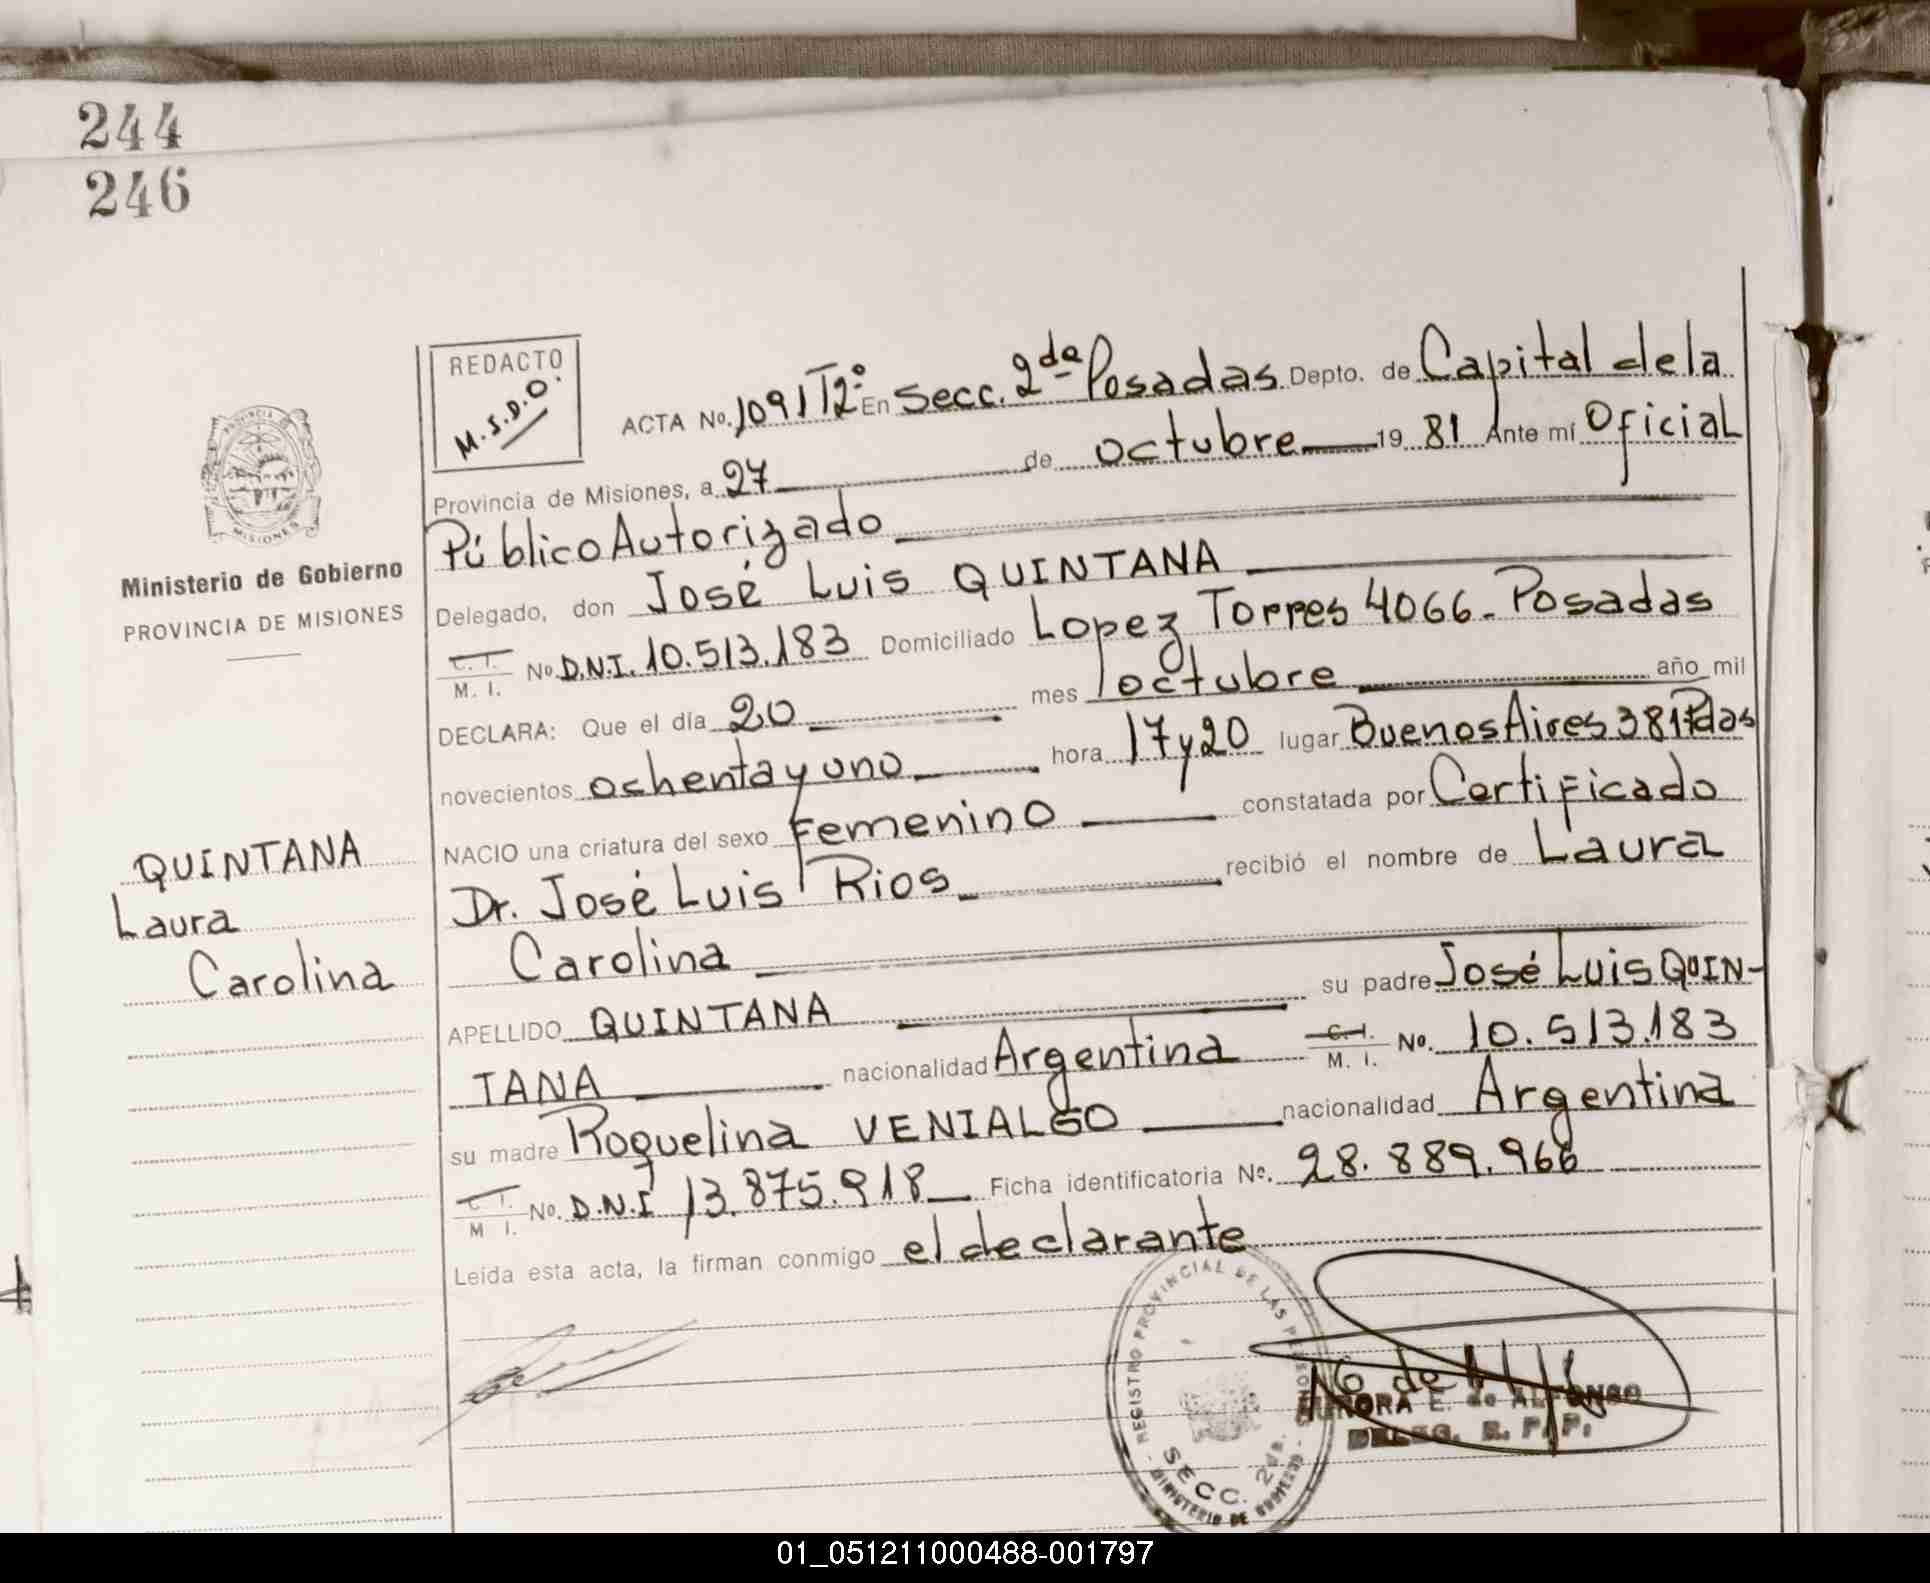 244
246
REDACTO
M.S.D.O.
PROVINCIA
MISIONES
Ministerio de Gobierno
PROVINCIA DE MISIONES
QUINTANA
Laura
Carolina
ACTA No. 1091 T2° En Secc. 2da Posadas Depto. de Capital de la
Provincia de Misiones, a 27 de octubre 19 81 Ante mí Oficial
Público Autorizado
Delegado, don José Luis QUINTANA
C. I. M. I. No. D.N.I. 10.513.183 Domiciliado Lopez Torres 4066 - Posadas
DECLARA: Que el día 20 mes octubre año mil
novecientos ochenta y uno hora 17 y 20 lugar Buenos Aires 381 Pdas
NACIO una criatura del sexo Femenino constatada por Certificado
Dr. José Luis Rios recibió el nombre de Laura
Carolina
APELLIDO QUINTANA su padre José Luis QUIN-
TANA nacionalidad Argentina C. I. M. I. No. 10.513.183
su madre Roquelina VENIALGO nacionalidad Argentina
C. I. M. I. No. D.N.I 13.875.918 Ficha identificatoria No. 28.889.966
Leída esta acta, la firman conmigo el declarante
REGISTRO PROVINCIAL DE LAS PERSONAS
SECC. 2da.
MINISTERIO DE GOBIERNO
E. de ALFONSO
DELEG. R. P. P.
01_051211000488-001797